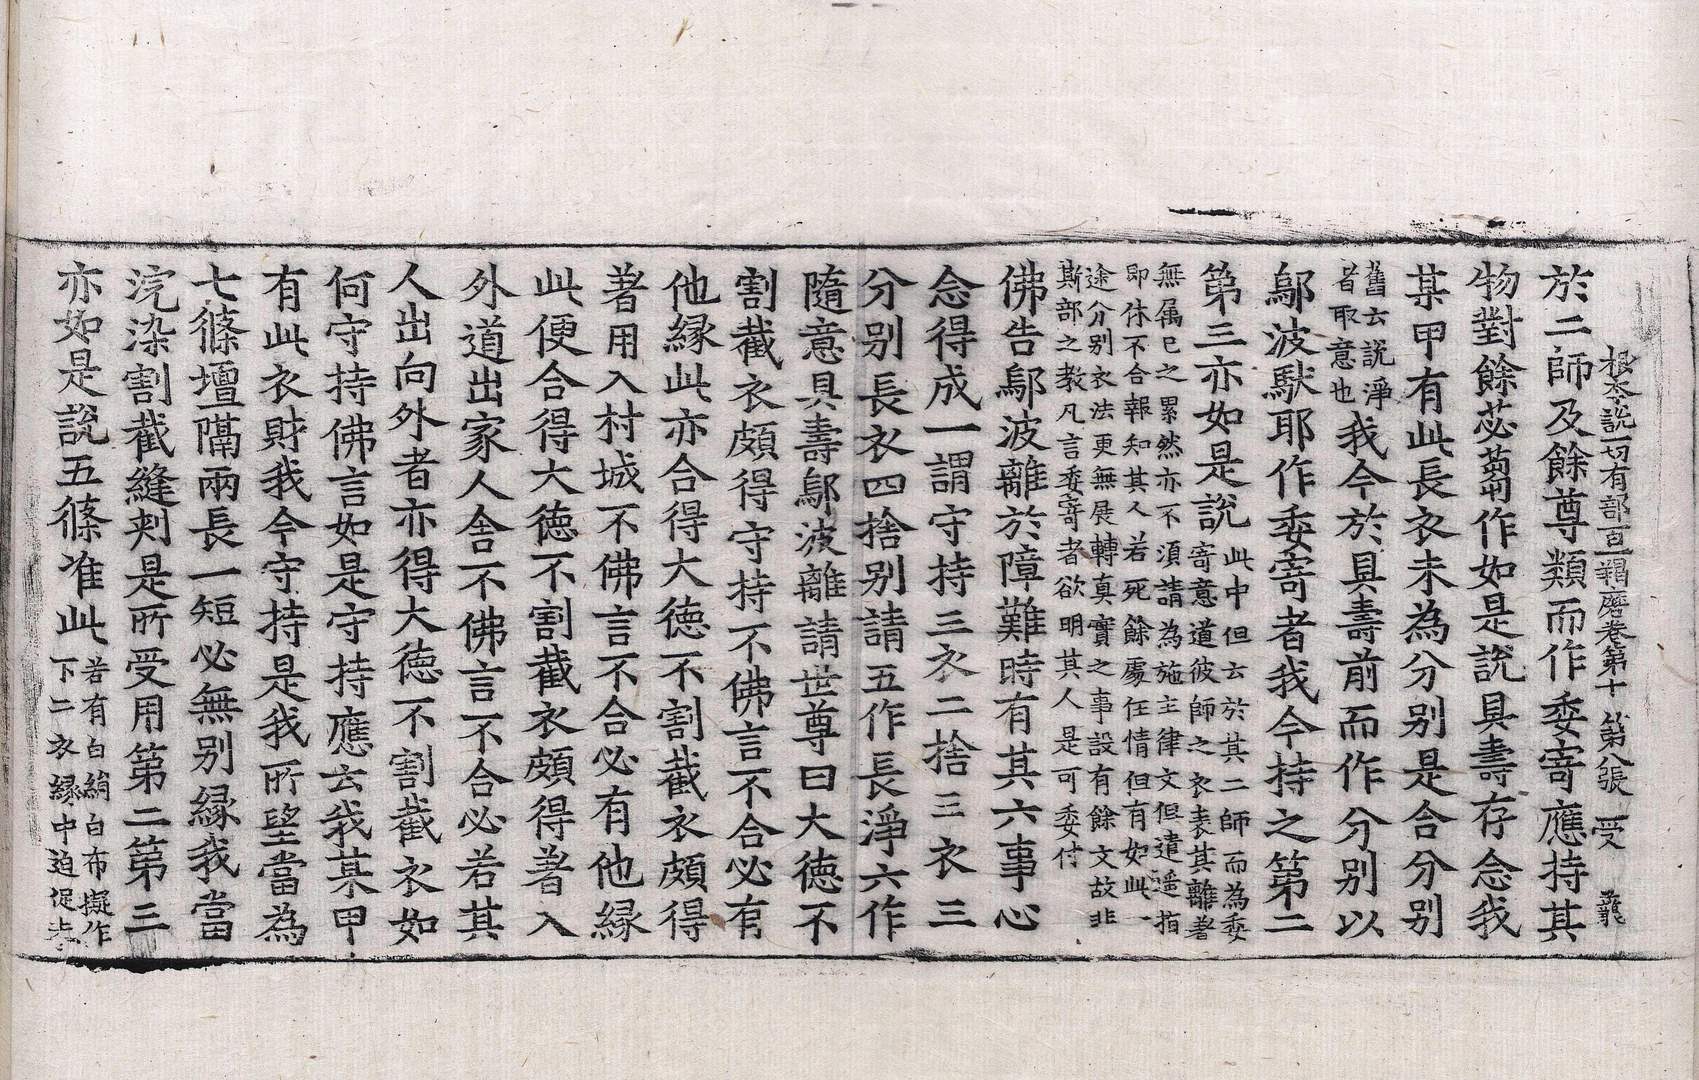 根本說一切有部百一羯磨卷第十 第八張 受
於二師及餘尊類而作委寄應持其
物對餘苾蒭作如是說具壽存念我
某甲有此長衣未為分別是合分別
舊云說淨
者取意也
我今於具壽前而作分別以
鄔波馱耶作委寄者我今持之第二
第三亦如是說
此中但云於其二師而為委
寄意道彼師之衣表其離著
無属己之累然亦不須請為施主律文但遣遥指
即休不合報知其人若死餘處任情但有如此一
途分別衣法更無展轉真實之事設有餘文故非
斯部之教凡言委寄者欲明其人是可委付
佛告鄔波離於障難時有其六事心
念得成一謂守持三衣二捨三衣三
分別長衣四捨別請五作長淨六作
隨意具壽鄔波離請世尊曰大德不
割截衣頗得守持不佛言不合必有
他縁此亦合得大德不割截衣頗得
著用入村城不佛言不合必有他縁
此便合得大德不割截衣頗得著入
外道出家人舍不佛言不合必若其
人出向外者亦得大德不割截衣如
何守持佛言如是守持應云我某甲
有此衣財我今守持是我所望當為
七條壇隔兩長一短必無別縁我當
浣染割截縫刺是所受用第二第三
亦如是說五條准此
若有白絹白布擬作
下二衣縁中迫促未